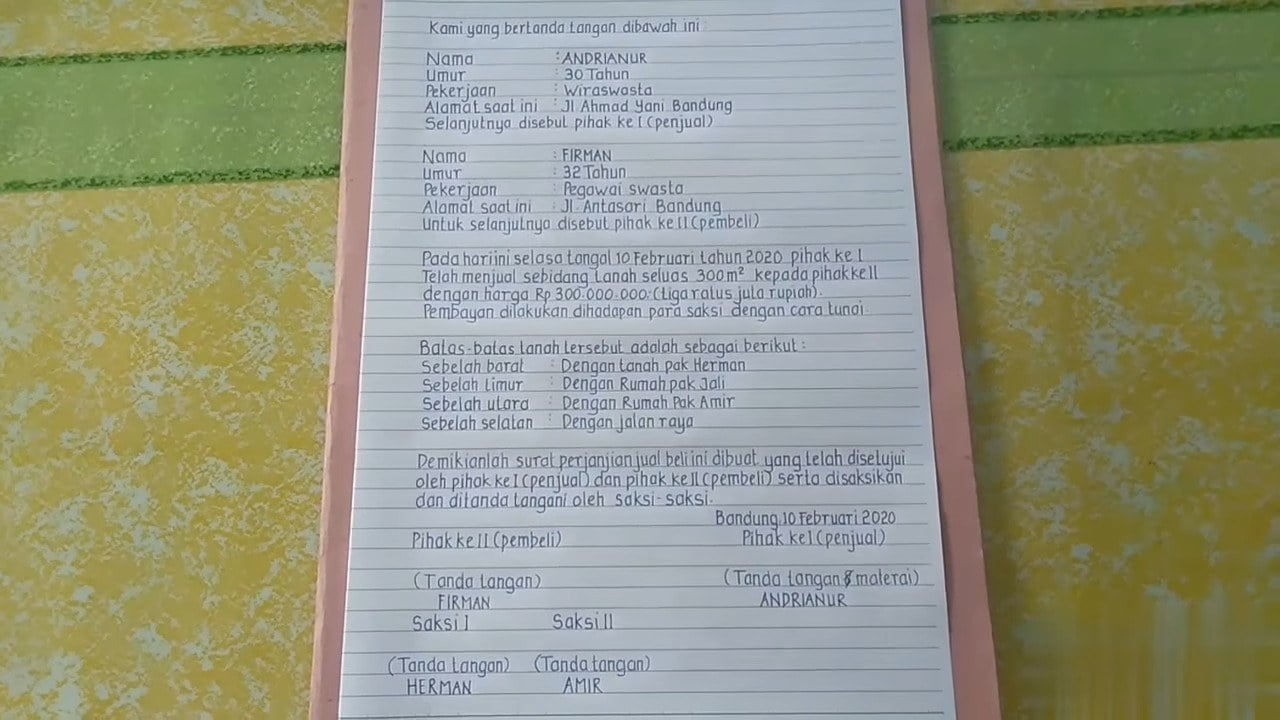 Kami yang bertanda tangan dibawah ini :
Nama : ANDRIANUR
Umur : 30 Tahun
Pekerjaan : Wiraswasta
Alamat saat ini : Jl Ahmad Yani Bandung
Selanjutnya disebut pihak ke I (penjual)
Nama : FIRMAN
Umur : 32 Tahun
Pekerjaan : Pegawai swasta
Alamat saat ini : Jl. Antasari Bandung
Untuk selanjutnya disebut pihak ke II (pembeli)
Pada hari ini selasa tanggal 10 Februari tahun 2020 pihak ke I
Telah menjual sebidang tanah seluas 300 m² kepada pihak ke II
dengan harga Rp 300.000.000,- (tiga ratus juta rupiah).
Pembayan dilakukan dihadapan para saksi dengan cara tunai.
Batas-batas tanah tersebut adalah sebagai berikut :
Sebelah barat : Dengan tanah pak Herman
Sebelah timur : Dengan Rumah pak Jali
Sebelah utara : Dengan Rumah Pak Amir
Sebelah selatan : Dengan jalan raya
Demikianlah surat perjanjian jual beli ini dibuat yang telah disetujui
oleh pihak ke I (penjual) dan pihak ke II (pembeli) serta disaksikan
dan ditanda tangani oleh saksi-saksi.
Bandung, 10 Februari 2020
Pihak ke II (pembeli) Pihak ke I (penjual)
(Tanda tangan) (Tanda tangan & materai)
FIRMAN ANDRIANUR
Saksi I Saksi II
(Tanda tangan) (Tanda tangan)
HERMAN AMIR